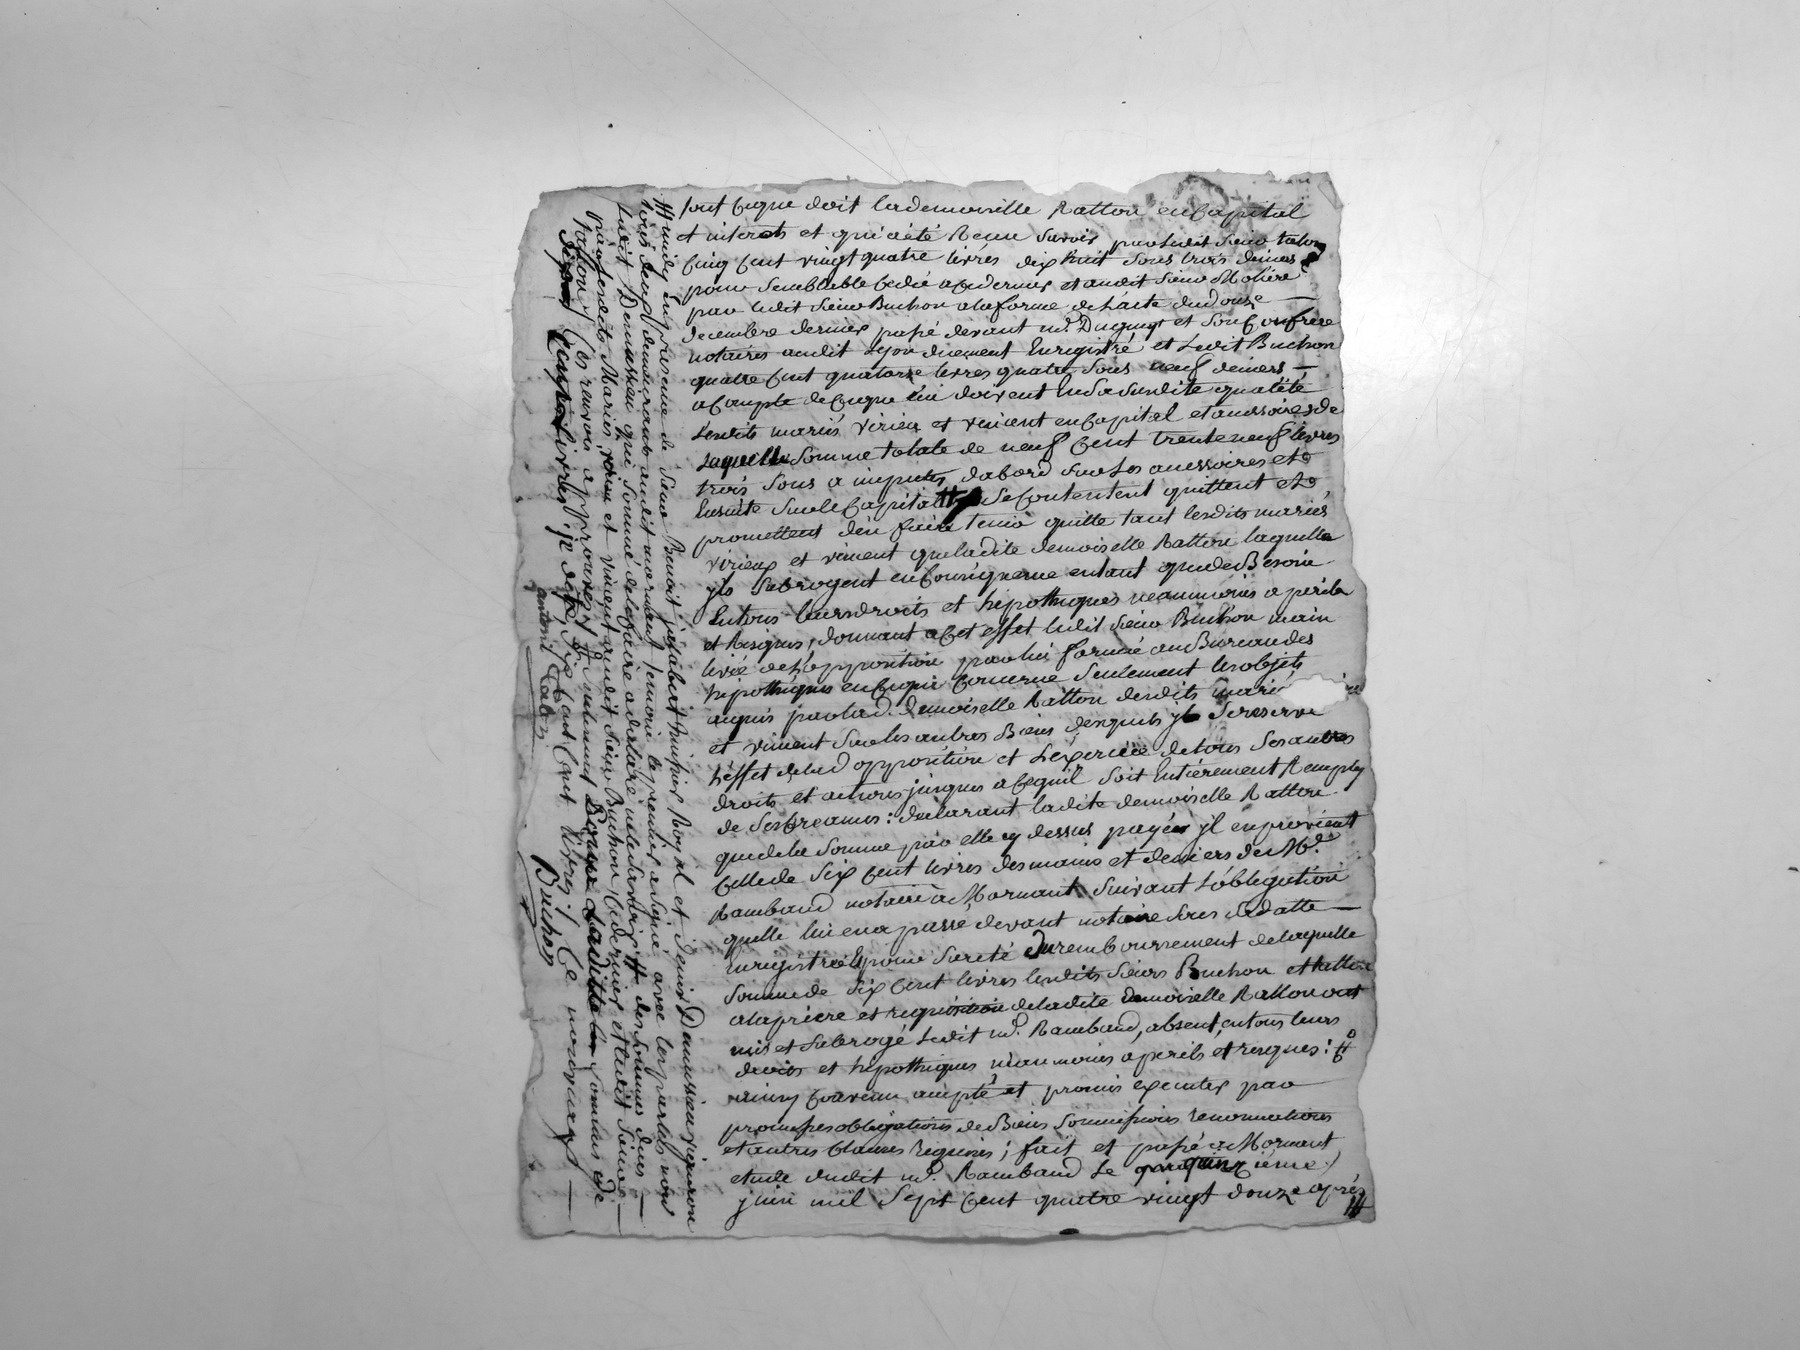 tout ceque doit lademoiselle Ratton encapital
et interets et qui aété Recue Savoir parledit Sieur talon
Cinq Cent vingt quatre livres dix huit Sous trois deniers
pour Semblable Cedée acedernier et audit Sieur Molière
par ledit Sieur Buchon alaforme de l'acte dudouze
decembre dernier passé devant me. Duguyt et Son Confrere
notaires audit Lyon duement Enregistré et Ledit Buchon
quatre Cent quatorze livres quatre Sous neuf deniers
a Compte deceque lui doivent EnSasusdite qualité
Lesdits mariés virieux et vincent encapital et accessoires de
Laquelle Somme totale de neuf Cent trenteneuf livres
trois Sous a imputer dabord Sur Les accessoires et
Ensuite Surle Capital Se Contentent quittent et
promettent d'en faire tenir quitte tant lesdits mariés
virieux et vincent queladite demoiselle Ratton laquelle
jls Subrogent en Conséquence entant que de Besoin
Entous leursdroits et hipotheques neanmoins a perils
et Risques, donnant acet effet ledit Sieur Buchon main
levée de L'opposition parlui formée au Bureau des
hipotheques en Cequi Concerne Seulement les objets
acquis parlad. demoiselle Ratton desdits mariés
et vincent Surles autres Biens desquels jl Sereserve
l'effet delad opposition et L'exercice detous Ses autres
droits et actions jusques a Cequil Soit Entièrement Remply
de Ses Creances : declarant ladite demoiselle Ratton
quedela Somme par elle cy dessus payée jl enprovient
Cellede Six Cent livres des mains et deniers de Me.
Rambaud notaire à Mornant Suivant L'obligation
quelle lui en a passé devant notaire Sous Sa datte
Enregistrée pour Sureté Duremboursement delaquelle
Somme de Six Cent livres lesdits Sieurs Buchon et tallon
alapriere et requisition deladite demoiselle Ratton ont
mis et Subrogé Ledit me. Rambaud, absent, entous leurs
droits et hipotheques neanmoins a perils et resques :
ainsy Convenu accepté et promis executer par
promesses obligations de Biens Soumissions renonciations
et autres Clauses Requises ; fait et passé a Mornant
etude dudit me. Rambaud Le quinzième
juin mil Sept Cent quatre vingt douze après
midy En presence de Sieur Benoit jossabert huissier Royal et Denis Damissieu vigneron
tous deux demeurants audit mornant temoins le premier a Signé avec les parties non
Ledit Damissieu qui Sommé delefaire adeclaré nele Savoir des Sommes dues
par lesdits Mariés virieux et vincent audit Sieur Buchon Cedernier et Ledit Sieur
Tallon Ces renvois approuvés
Compte livres Cent livres Ce nouveaux
antoine Talon
Buchon